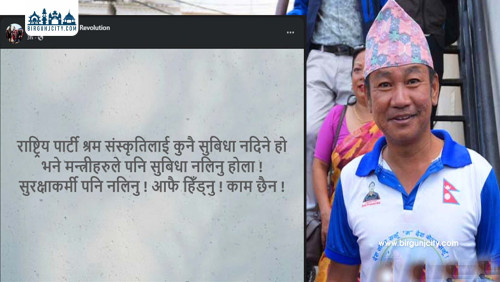 BIRGUNJCITY.COM
Revolution
राष्ट्रिय पार्टी श्रम संस्कृतिलाई कुनै सुबिधा नदिने हो
भने मन्त्रीहरुले पनि सुबिधा नलिनु होला !
सुरक्षाकर्मी पनि नलिनु ! आफै हिँड्नु ! काम छैन !
www.birgunjcity.com